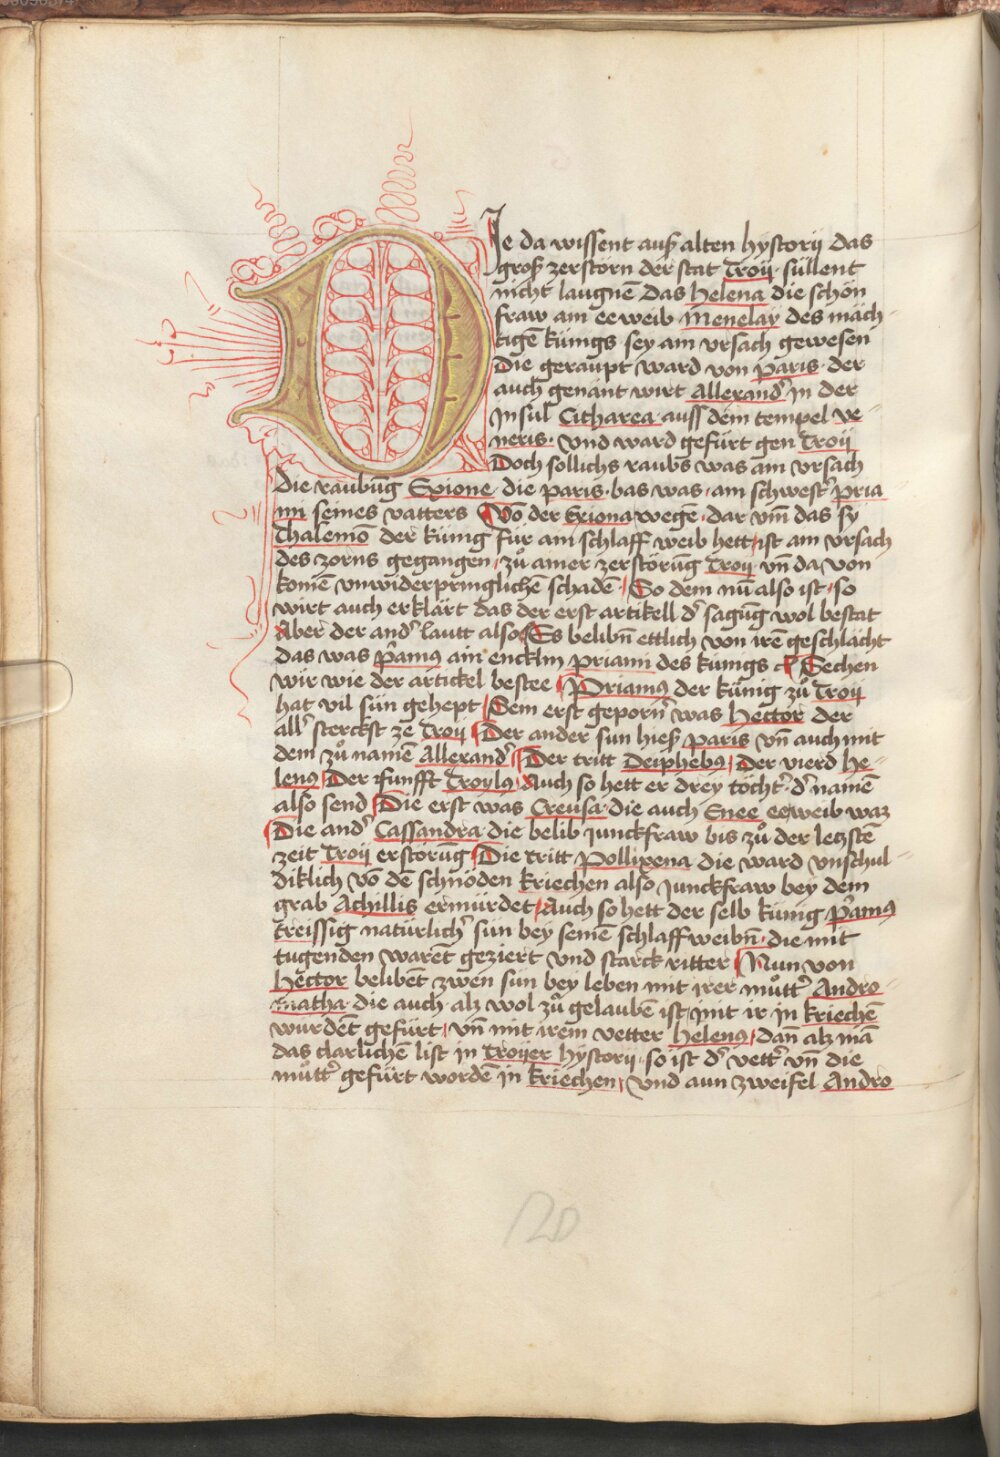 DIe da wissent auß alten hystorij das
groß zerstörn der stat Troij · süllent
nicht laugnē das Helena die schön
fraw am eeweib Menelay des mäch-
tigē künigs · sey am ursach gewesen
Die geraupt ward von Paris · der
auch genant wirt Allexandˀ in der
Insul Citharea · auss dem tempel ve-
neris · Vnd ward gefürt gen Troij
Doch sollichs raubs was am vrsach
die raubūg Exione · die paris · bas was · am schwestˀ pria
mi seines vatters Vō der Exiona wegē · dar vm̄ das sy
Thalemō der künig für am schlaff weib hett · ist am vrsach
des zorns gegangen · zů ainer zerstörūg Troij · vn̄ da von
komē vnwiderpringlichen schadē · So dem nū also ist · so
wirt auch erklärt das der erst artikell dˀ sagūg wol bestat
Aber der andˀ lautt also Es belibn̄ ettlich von irē geschlächt
das was pˀamꝰ ain encklin priami des kunigs ꝛc Sechen
wir wie der artickel bestee Priamꝰ der kűnig zů Troij
hat vil sün gehept Sein erst gepornˀ was Hector der
allˀ sterckst ze Troij Der ander sun hieß paris vn̄ auch mit
dem zů namē Allexandˀ Der tritt Deiphebꝰ Der vierd He-
lenꝰ Der funfft Troylꝰ Auch so hett er drey töchtˀ · dˀ namē
also send Die erst was Creusa · die auch Enee eeweib waz
Die andˀ Cassandra die belib junckfraw bis zů der letzstē
zeit Troij erstörūg Die tritt Pollixena die ward vnschul-
diklich vō dē schnöden kriechen also junckfraw bey dem
grab Achillis ermürdet Auch so hett der selb künig pˀamꝰ
treissig natürlichˀ sün bey seinē schlaffweibn̄ · die mit
tugenden warēt geziert vnd starck ritter Nun von
Hector belibēt zwen sün bey leben mit irer můttˀ Andro-
matha · die auch · alz wol zů gelaubē ist · mit ir in kriechē
wurdēt gefürt vn̄ mit irem vetter Helenꝰ · dan̄ alz mā
das clarlichē list in Troijer hystorij · so ist dˀ vettˀ vn̄ die
můttˀ gefürt wordē in kriechen · Vnd aun zweifel Andro
120